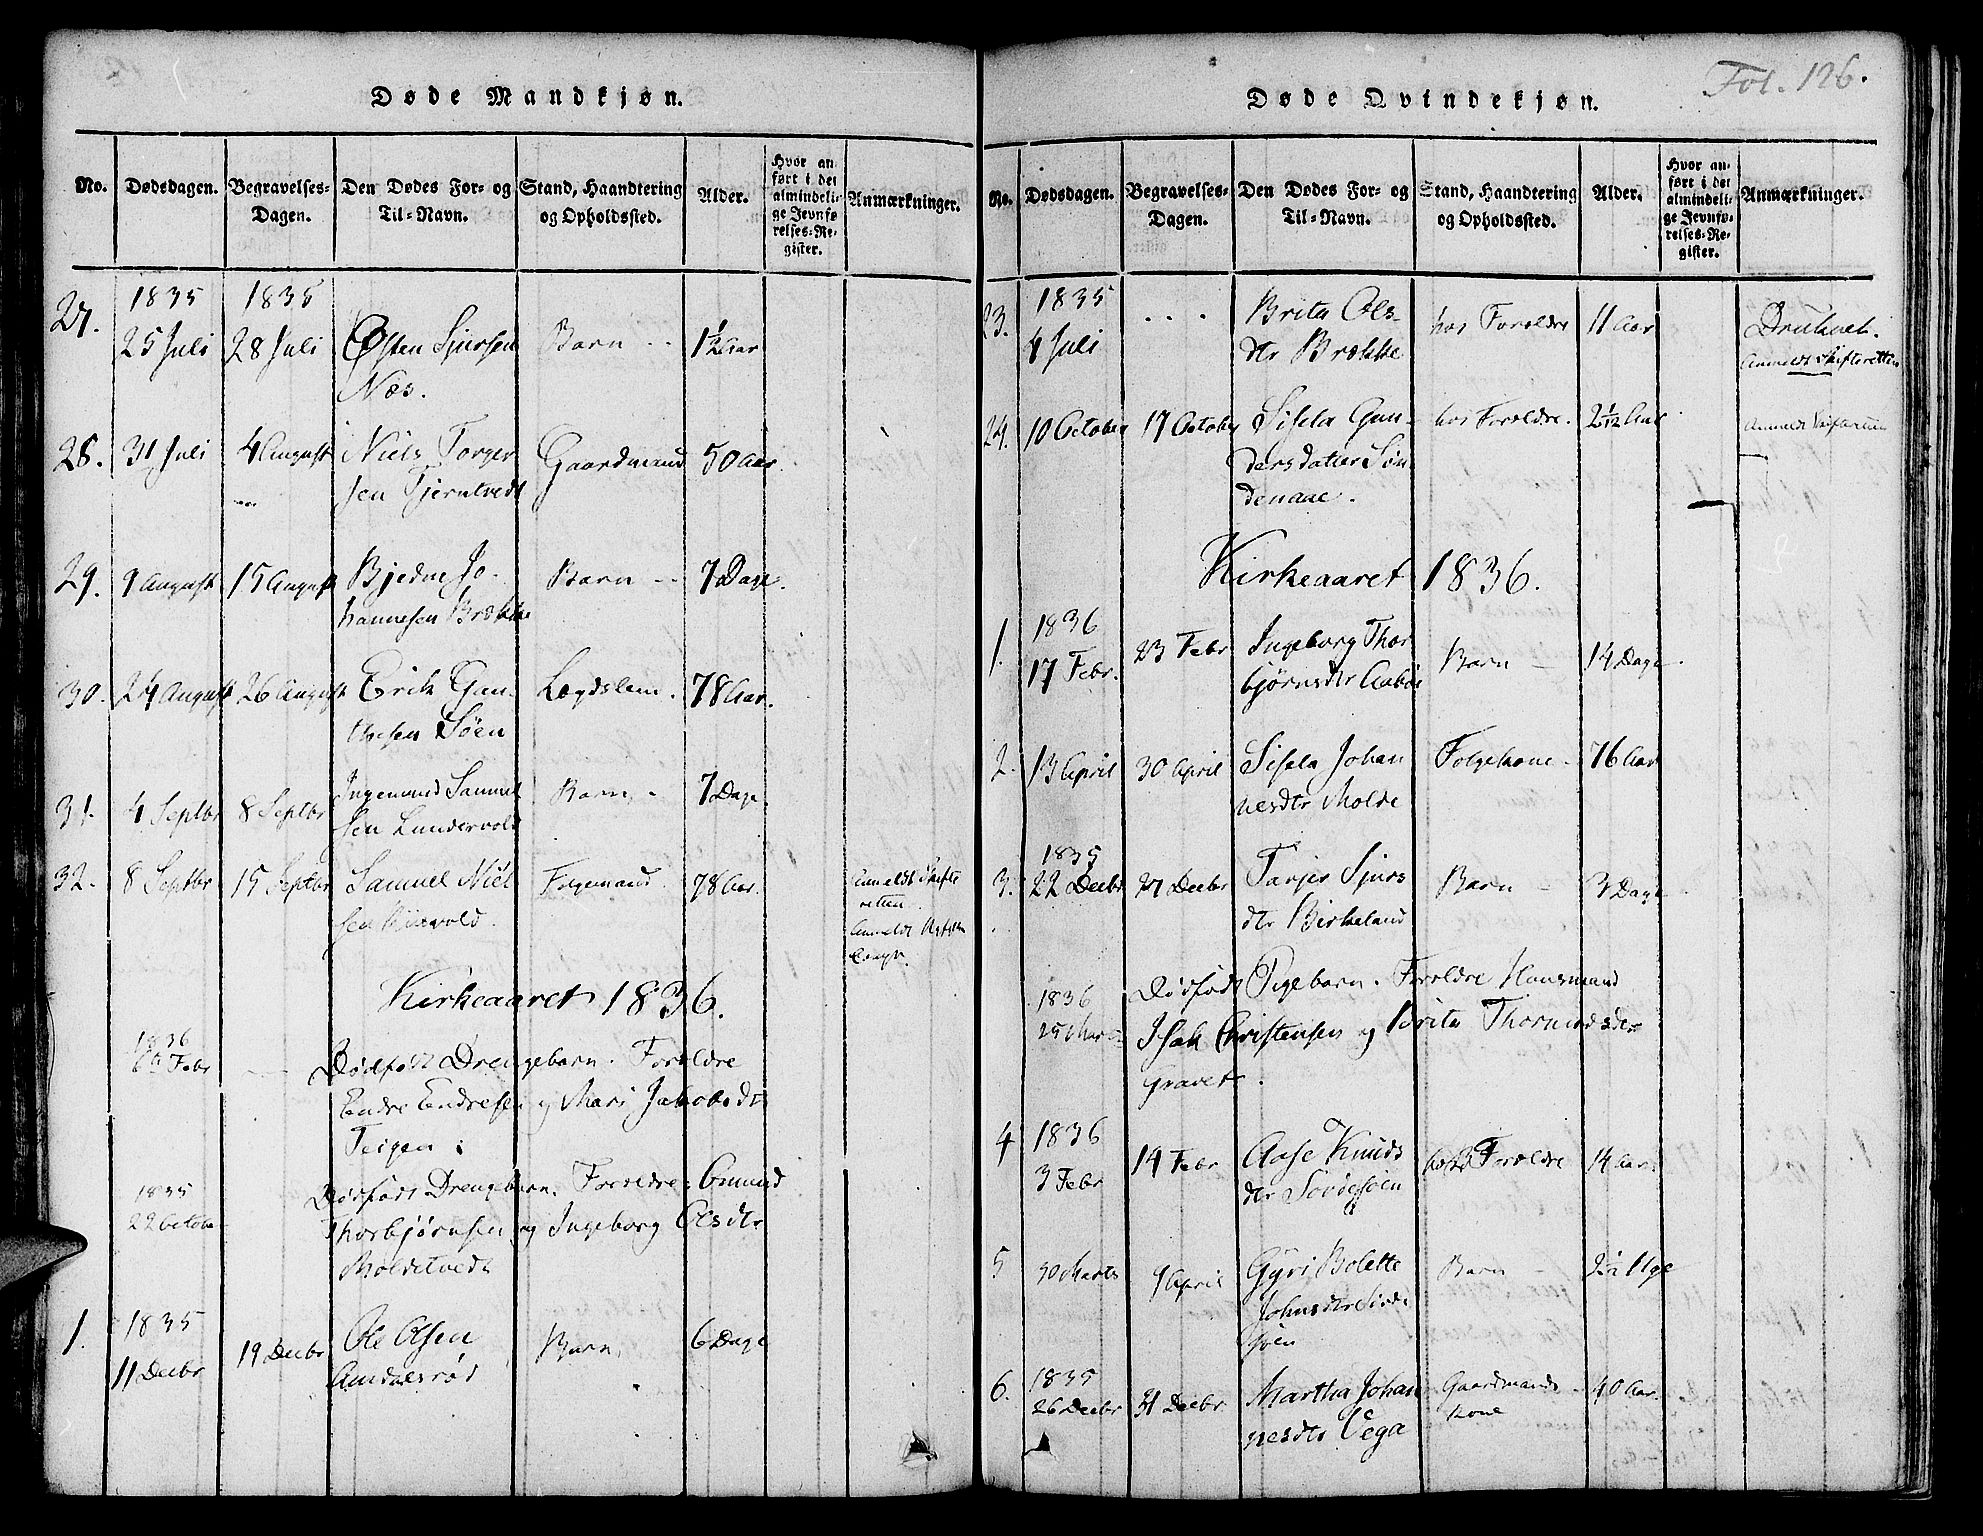 Døde Mandkjøn.
No. Dødsdagen. Begravelses-Dagen. Den Dødes For- og Til-Navn. Stand, Haandtering og Opholdssted. Alder. Hvor anført i det almindelige Jevnførelses-Register. Anmærkninger.
27. 1835 1835
25 Juli 28 Juli Østen Sjursen Barn 1½ Aar
Næs.
28. 31 Juli 4 August Niels Torger Gaardmand 50 Aar
sen Tjerntvedt
29. 9 August 15 August Bjedne Jo- Barn 7 Dage.
hannesen Brække
30. 24 August 26 August Erik Gun- Lægdslem. 78 Aar.
thesen Søen
31. 4 Septbr 8 Septbr Ingemund Samuel Barn 7 Dage.
sen Lundervold
32. 8 Septbr 15 Septbr Samuel Niel Folgemand. 78 Aar. Anmeldt Skifte
sen retten.
Anmeldt
Kirkeaaret 1836.
1836
Febr Dødfødt Drengebarn. Forældre
Endre Endresen og Mari Jakobsdtr
Teigen.
1835
22 October Dødfødt Drengebarn. Forældre: Omund
Thorbjørnsen og Ingeborg Olsdtr
Moldtvedt
1. 1835
11 Decbr 19 Decbr Ole Olsen Barn, 6 Dage
Amdalsrød
Fol. 126.
Døde Qvindekjøn.
No. Dødsdagen. Begravelses-Dagen. Den Dødes For- og Til-Navn. Stand, Haandtering og Opholdssted. Alder. Hvor anført i det almindelige Jevnførelses-Register. Anmærkninger.
23. 1835 . . . Brita Ols- hos Forældre 11 Aar Druknet.
4 Juli dtr Brække Anmeldt Skifteretten
24. 10 October 17 October Sisela Gun- hos Forældre. 2 1/12 Aar Anmeldt Skifteretten
dersdatter Søn
denaae.
Kirkeaaret 1836.
1. 1836
17 Febr. 23 Febr Ingeborg Thor Barn 14 Dage
bjørnsdtr Aabøe
2. 13 April 30 April Sisela Johan Folgekone 76 Aar
nesdtr Molde
3. 1835
22 Decbr 27 Decbr Tarjer Sjurs Barn 3 Dage
dtr Birkeland
1836 Dødfødt Pigebarn. Forældre Huusmand
25 Marts Isak Christensen og Brita Thormodsdtr
Gravet.
4 1836
3 Febr 14 Febr Aase Knuds hos Forældre 14 Aar.
dtr
5 30 Marts 9 April Gyri Bolette Barn Uge
Johnsdtr
6. 1835
26 Decbr 31 Decbr Martha Johan Gaardmands 40 Aar.
nesdtr Vega Kone